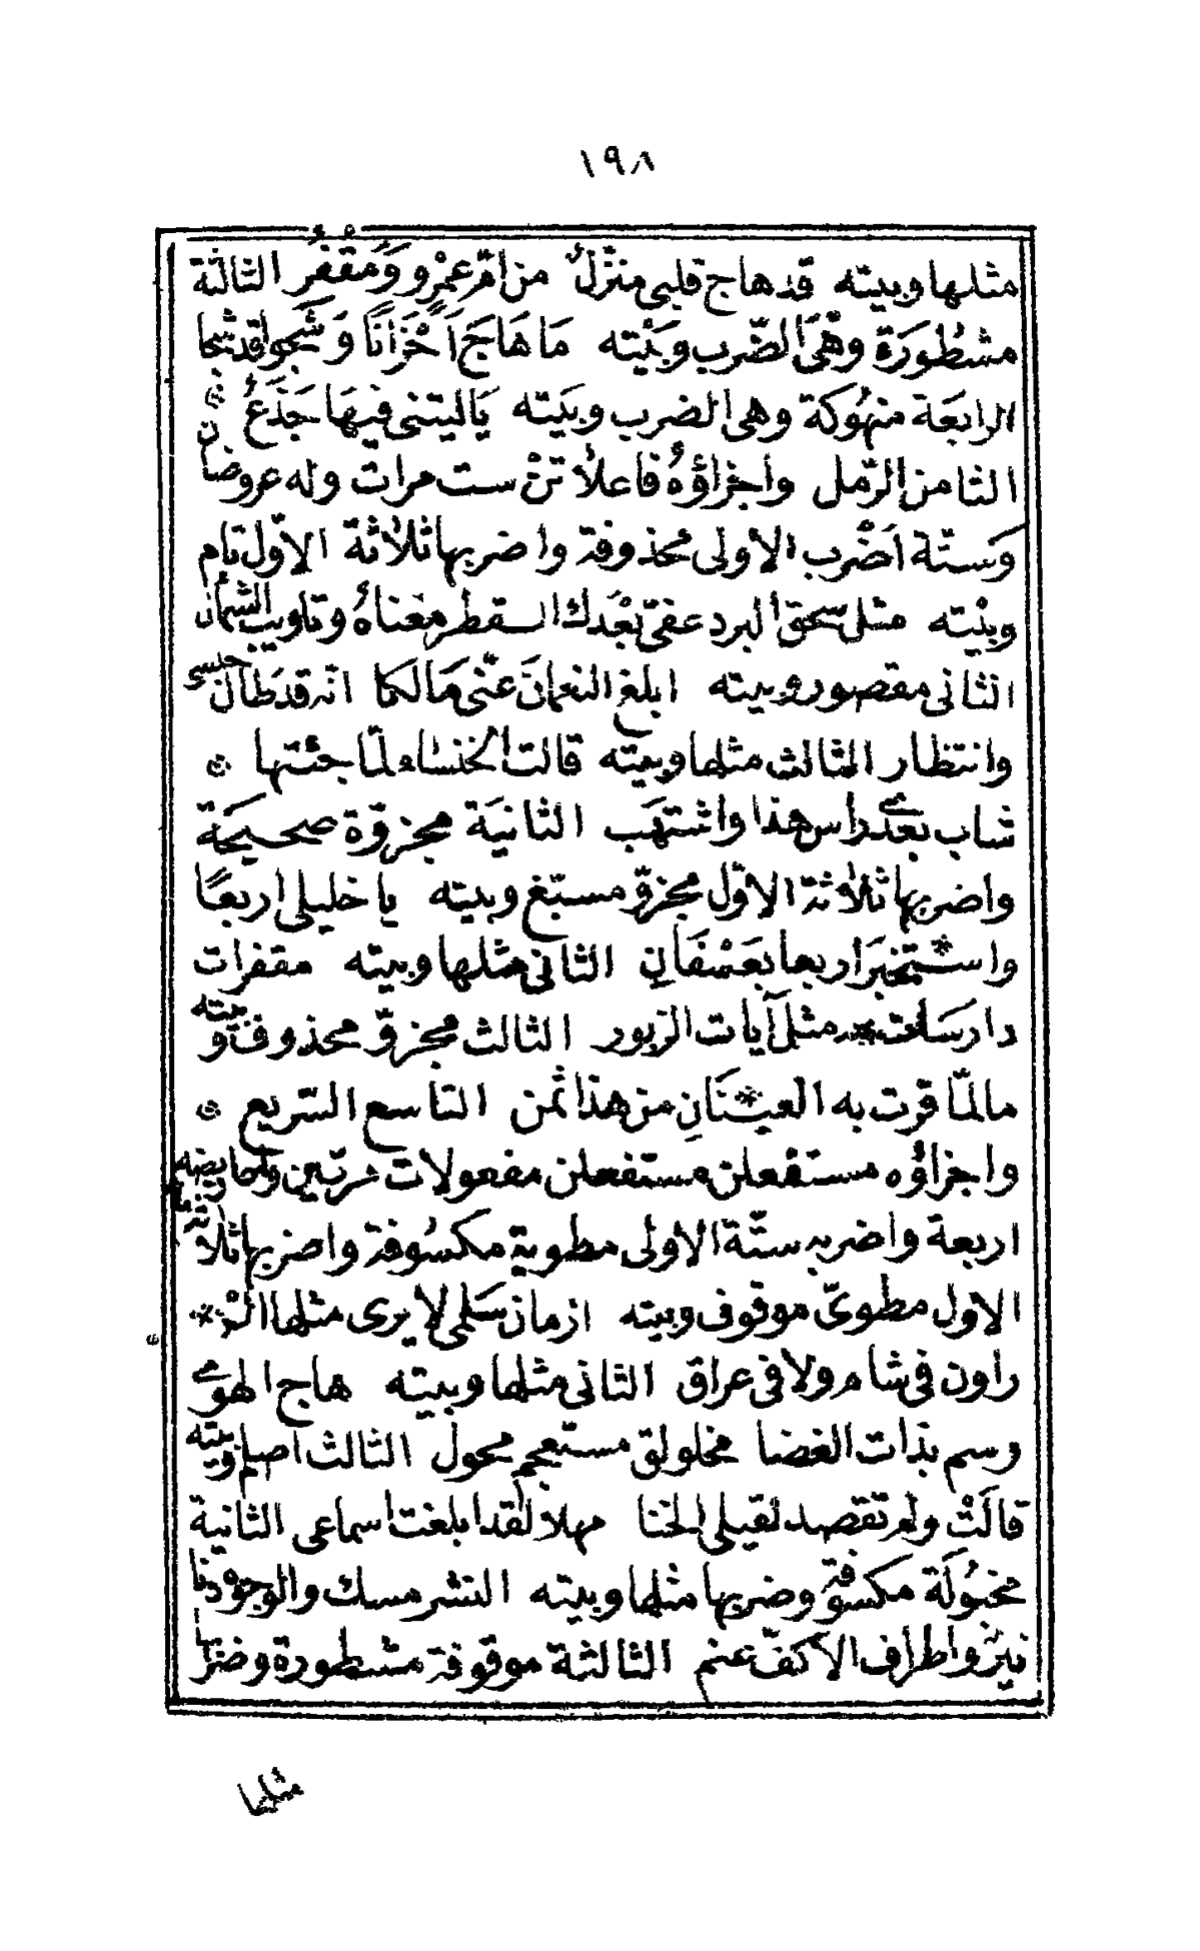 ١٩٨
مثلها وبيته قد هاج قلبى منْزلٌ من امّ عمْرٍو ومُقْفرُ الثالثة
مشطُورَة وهْىَ الضّرب وبَيْته مَا هَاجَ اَحْزَانًا وَشَجوا قد شجا
الرابعَة منهُوكة وهى الضرب وبيَته يَاليتنى فيهَا جَذَعُ
الثامن الرّمل واجزاؤهُ فاعلاُتنْ ست مرات وله عروضان
وَستّة اَضْرب الاولى محذوفة واضربها ثلاثة الاوّل تام
وبيْته مثل سحق البرد عفىّ بَعْدك القطر مغناهُ وتاويب الشمأل
الثانى مقصور وبيته ابلغ النعمانَ عنّى مَالكا انّه قد طَال حبسى
وانتظار الثالث مثلها وبيته قالت الخنساء لمّا جئتها
شاب بعدى راس هذا واشتهَب الثانيَة مجزوّة صحيحَة
واضربها ثلاثة الاوّل مجزوّ مسبّغ وبيته يا خليلى اربعَا
واستخبرَا ربعا بعَسْفَانِ الثانى مثلها وبيته مقفرات
دارسَات مثل آيات الزبور الثالث مجزوّ محذوف وبيته
مالمّا قرت به العينَانِ من هذا ثمن التاسع السّريع
واجزاؤه مستفعلن مستفعلن مفعولات مرّتين واعاريضه
اربعة واضربه ستّة الاولى مطوية مكسُوفة واضربها ثلاثة
الاول مطوىّ موقوف وبيته ازمان سَلمى لا يرى مثلها الرْ
راون فى شام ولا فى عراق الثانى مثلها وبيته هاج الهوى
رسم بذات الغضا مخلولق مستعجم محول الثالث اصلم وبيته
قالَتْ ولم تقصد لقيلى الخنا مهلا لقد ابلغت اسماعى الثانية
مخبُولَة مكسوفة وضربها مثلها وبيته النشر مسك والوجوه دنا
نير واطراف الاكفّ عنم الثالثة موقوفة مشطورة وضربها
مثلها